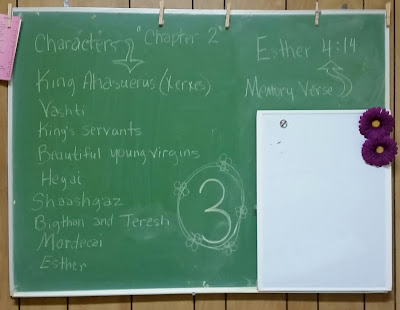 Characters "Chapter 2"
King Ahasuerus (Xerxes)
Vashti
King's servants
Beautiful young virgins
Hegai
Shaashgaz
Bigthan and Teresh
Mordecai
Esther
3
Esther 4:14
Memory Verse